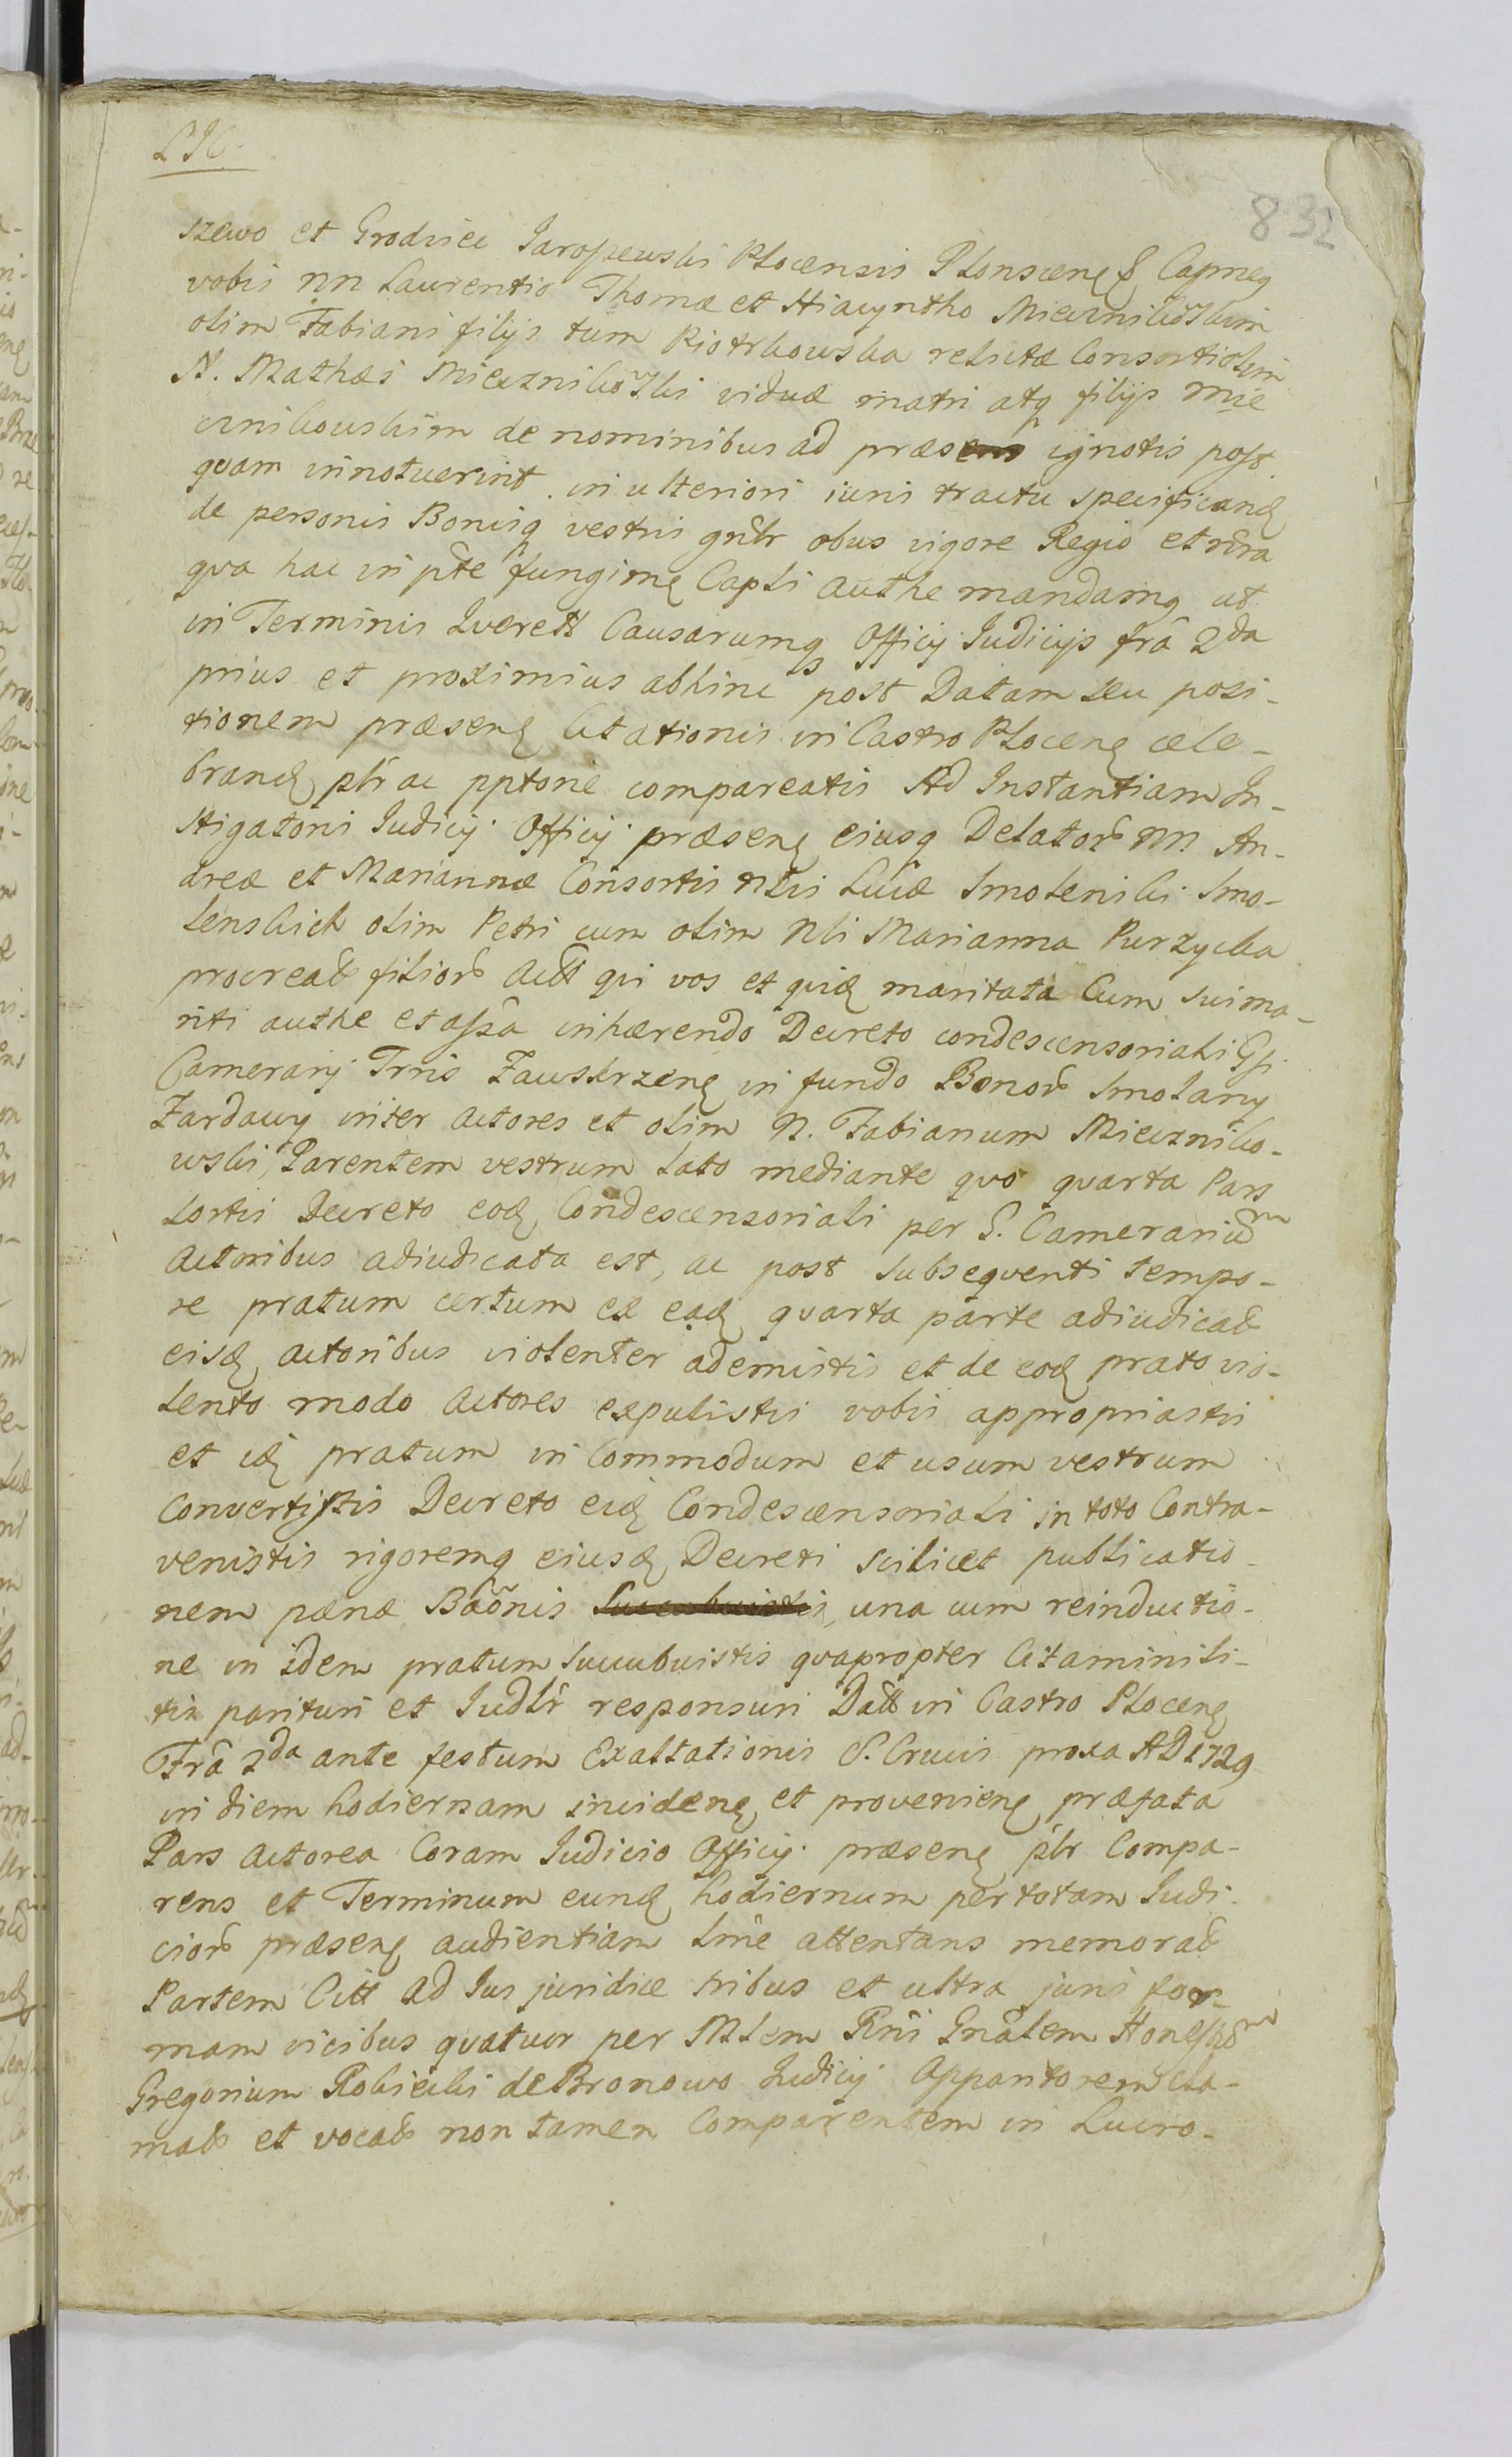 832
szewo et Grodnice Jaroszewski Plocensis Plonscens Capneq
vobis nn Laurentio Thomæ et Hiacyntho Miecznikowskim
olim Fabiani filijs tum Piotrkowska relictæ Consorti olim
N. Mathæi Miecznikowski viduæ matri atq filijs Mie
cznikowskim de nominibus ad præsens ignotis post
quam innotuerint in ulteriori iuris tractu specificand
de personis Bonisq vestris gnlr obus vigore Regio et nra
qua hac in pte fungimq Capli authe mandamq ut
in Terminis Querell Causarumq Officij Judicijs fra 2da
prius et proximius abhinc post Datam seu posi-
tionem præsens Citationis in Castro Plocens cele-
brand plr ac pptorie compareatis Ad Instantiam In-
stigatoris Judicij Officij præsens eiusq Delator NN An-
dreæ et Mariannæ Consortis nlis Luciæ Smolenski Smo-
lenskich olim Petri cum olim Nli Marianna Purzycka
procreat filior Act qui vos et quid maritata Cum sui ma-
riti authe et assa inhærendo Decreto condescensoriali Gsi
Camerarij Trris Zawskrzens in fundo Bonor Smolany
Zardawy inter Actores et olim N. Fabianum Mieczniko-
wski, Parentem vestrum lato mediante quo quarta Pars
sortis Decreto eod Condescensoriali per G. Camerarium
Actoribus adiudicata est, ac post subsequenti tempo-
re pratum certum ex ead quarta parte adiudicat
eisd actoribus violenter ademistis et de eod prato vio-
lento modo Actores expulistis vobis appropriastis
et id pratum in Commodum et usum vestrum
Convertistis Decreto eid Condescensoriali in toto Contra-
venistis rigoremq eiusd Decreti scilicet publicatio-
nem pænæ Baonis Succubuistis, una cum reinductio-
ne in idem pratum Succubuistis quapropter Citamini li-
tis parituri et Judlr responsuri Datt in Castro Plocens
Fra 2da ante festum Exaltationis S. Crucis proxa AD 1729
in diem hodiernam incidens et proveniens præfata
Pars Actorea Coram Judicio Officij præsens plr Compa-
rens et Terminum eund hodiernum per totam Judi-
cior præsens audientiam lme attentans memorat
Partem Citt ad Jus juridice tribus et ultra juris for-
mam vicibus quatuor per Mlem Rni Gnalem Honestum
Gregorium Robiecki de Bronowo Judicij Apparitorem cla-
mat et vocat non tamen Comparentem in Lucro-